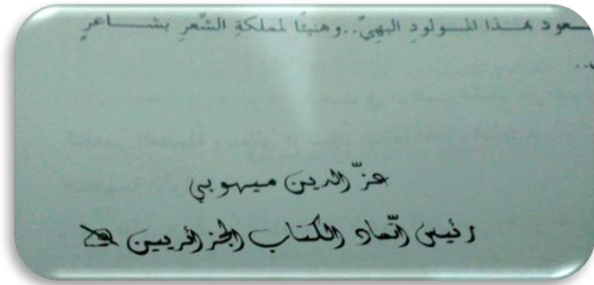 ـعود بهـذا المـولودِ البهيّ..وهنيئًا لمملكةِ الشّعرِ بشـــاعرٍ
..
عزّ الدين ميهوبي
رئيس اتّحاد الكتاب الجزائريين